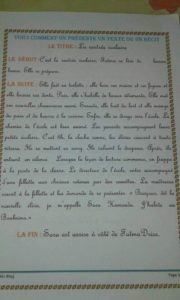 VOICI COMMENT ON PRÉSENTE UN TEXTE OU UN RÉCIT
LE TITRE : La rentrée scolaire
LE DÉBUT : C'est la rentrée scolaire. Fatima se lève de bonne
heure. Elle se prépare.
LA SUITE : Elle fait sa toilette : elle lave ses mains et sa figure et
elle brosse ses dents. Puis, elle s'habille de beaux vêtements. Elle met
ses nouvelles chaussures noires. Ensuite, elle boit du lait et elle mange
du pain et du beurre à la cuisine. Enfin, elle se dirige vers l'école.
Le chemin de l'école est bien animé. Les parents accompagnent leurs
petits écoliers. C'est 8h, la cloche sonne, les élèves courent à toute
vitesse. Ils se mettent en rang. Ils saluent le drapeau. Après, ils
entrent en classe. Lorsque la leçon de lecture commence, on frappe
à la porte de la classe. Le directeur de l'école, entre accompagné
d'une fillette aux cheveux retenus par des
à la fillette et lui demande de se présenter. « Bonjour, je suis
nouvelle élève, je m'appelle Sara
LA FIN : Sara est assise à côté de Fatima